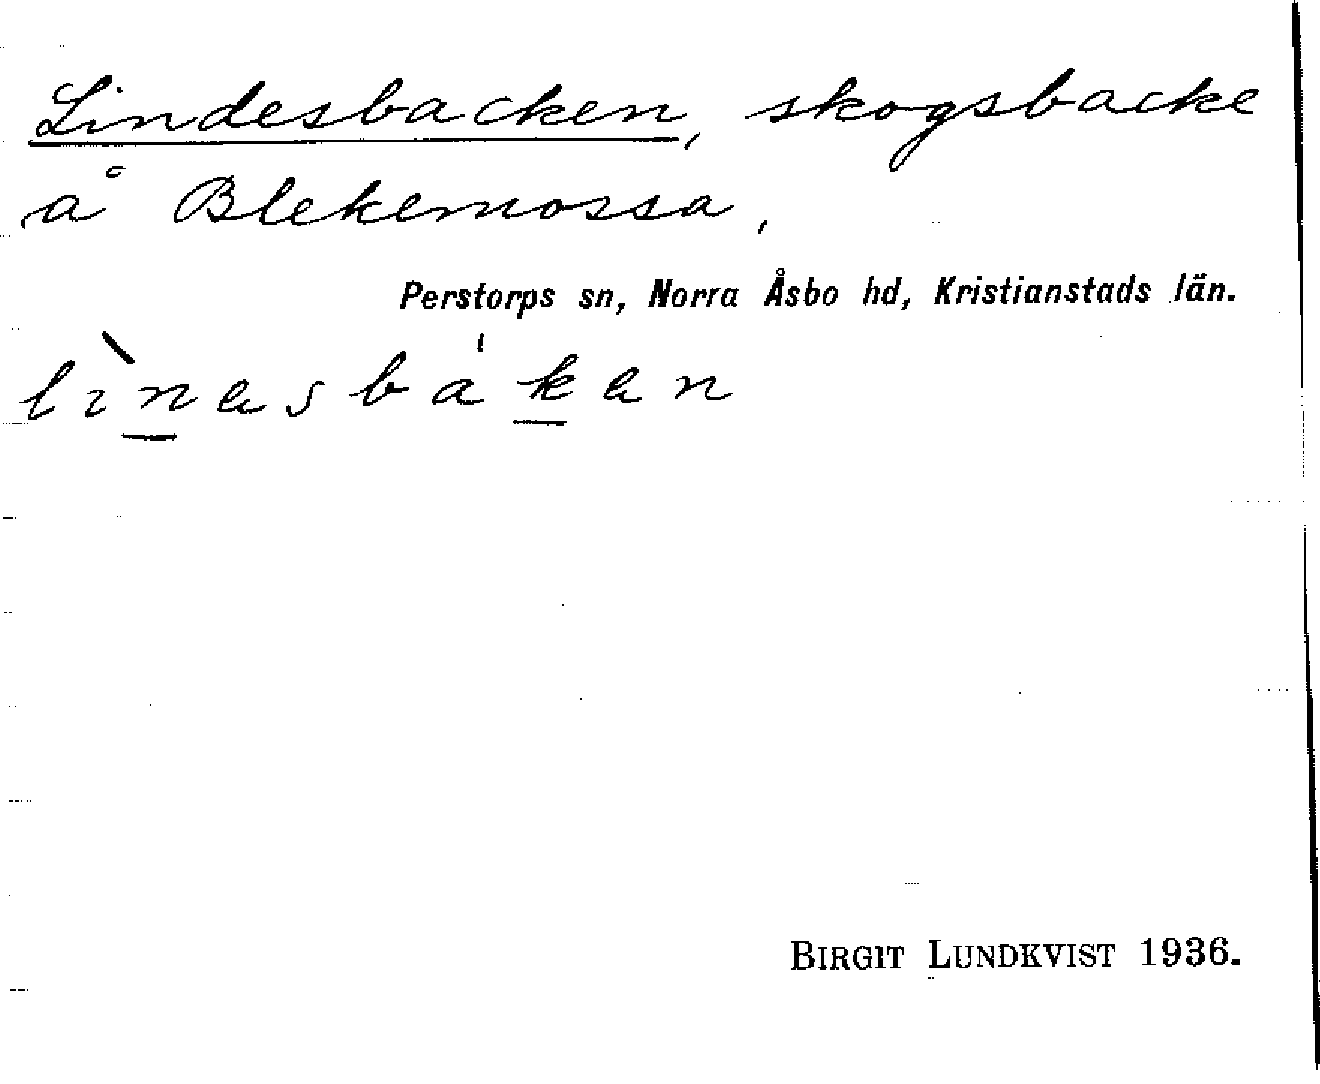 Lindesbacken, skogsbacke
å Blekemossa,
Perstorps sn, Norra Åsbo hd, Kristianstads län.
lìnəsbákən
BIRGIT LUNDKVIST 1936.